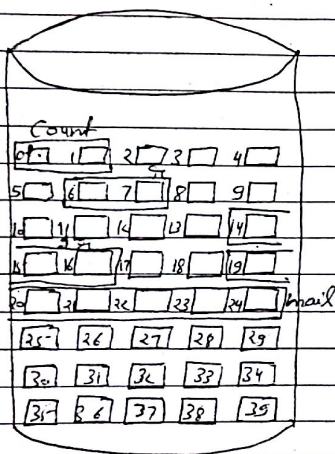 Count
0 1 2 3 4
5 6 7 8 9
10 11 12 13 14
15 16 17 18 19
20 21 22 23 24 mail
25 26 27 28 29
30 31 32 33 34
35 36 37 38 39